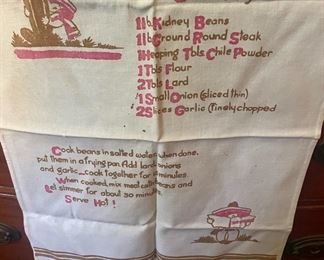 1 lb. Kidney Beans
1 lb Ground Round Steak
1 Heaping Tbls Chile Powder
1 Tbls Flour
2 Tbls Lard
1 Small Onion (sliced thin)
2 Slices Garlic (finely chopped
Cook beans in salted water when done,
put them in a frying pan. Add lard, onions
and garlic_cook together for minutes
When cooked, mix meal beans and
Let simmer for about 30 minutes.
Serve Hot!